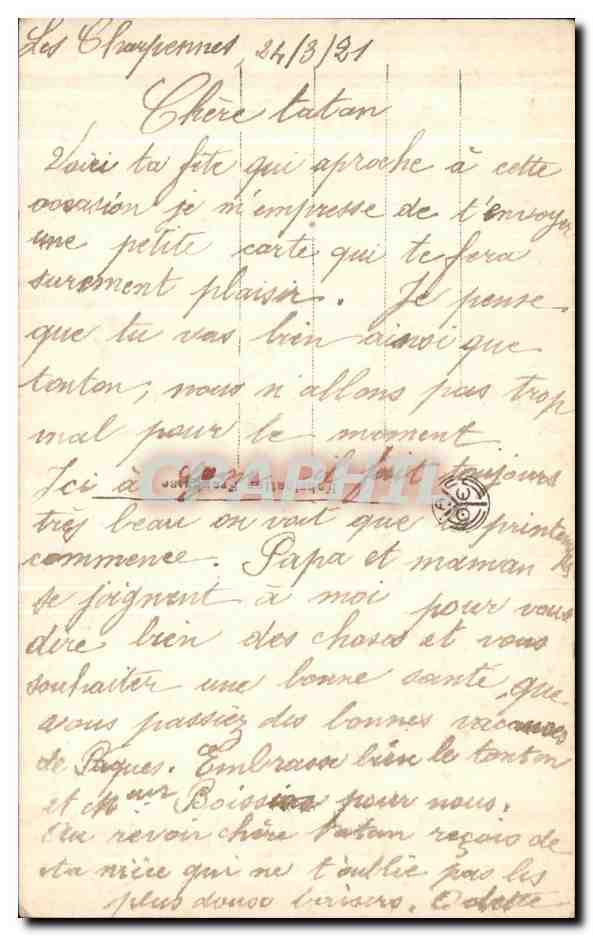 Les Charpennes, 24/3/21
Chère tatan
Voici ta fête qui aproche à cette
occasion je m'empresse de t'envoyer
une petite carte qui te fera
surement plaisir. Je pense
que tu vas bien ainsi que
tonton, nous n'allons pas trop
mal pour le moment
Ici à Lyon il fait toujours
très beau on voit que le printemps
commence. Papa et maman
se joignent à moi pour vous
dire bien des choses et vous
souhaiter une bonne santé, que
vous passiez des bonnes vacances
de Pâques. Embrasse bien le tonton
et M pour nous.
Au revoir chère tatan reçois de
ta nièce qui ne t'oublie pas les
plus doux baisers. Odette
CRAPHIL